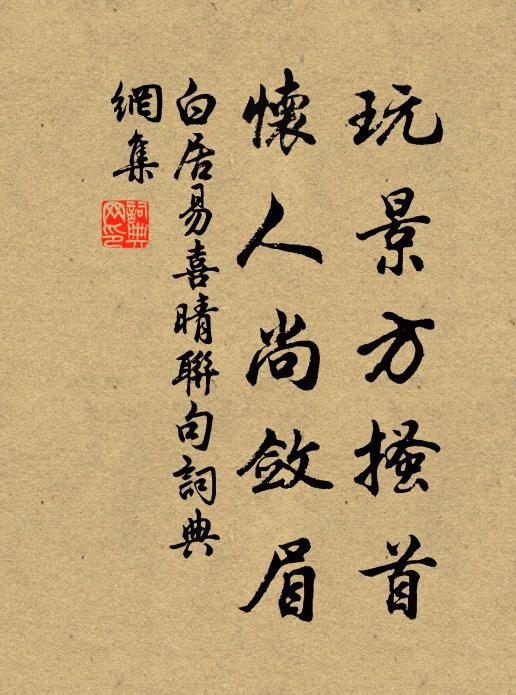 玩景方搔首
懷人尚斂眉
白居易喜晴聯句詞典
網集
詞典
网印